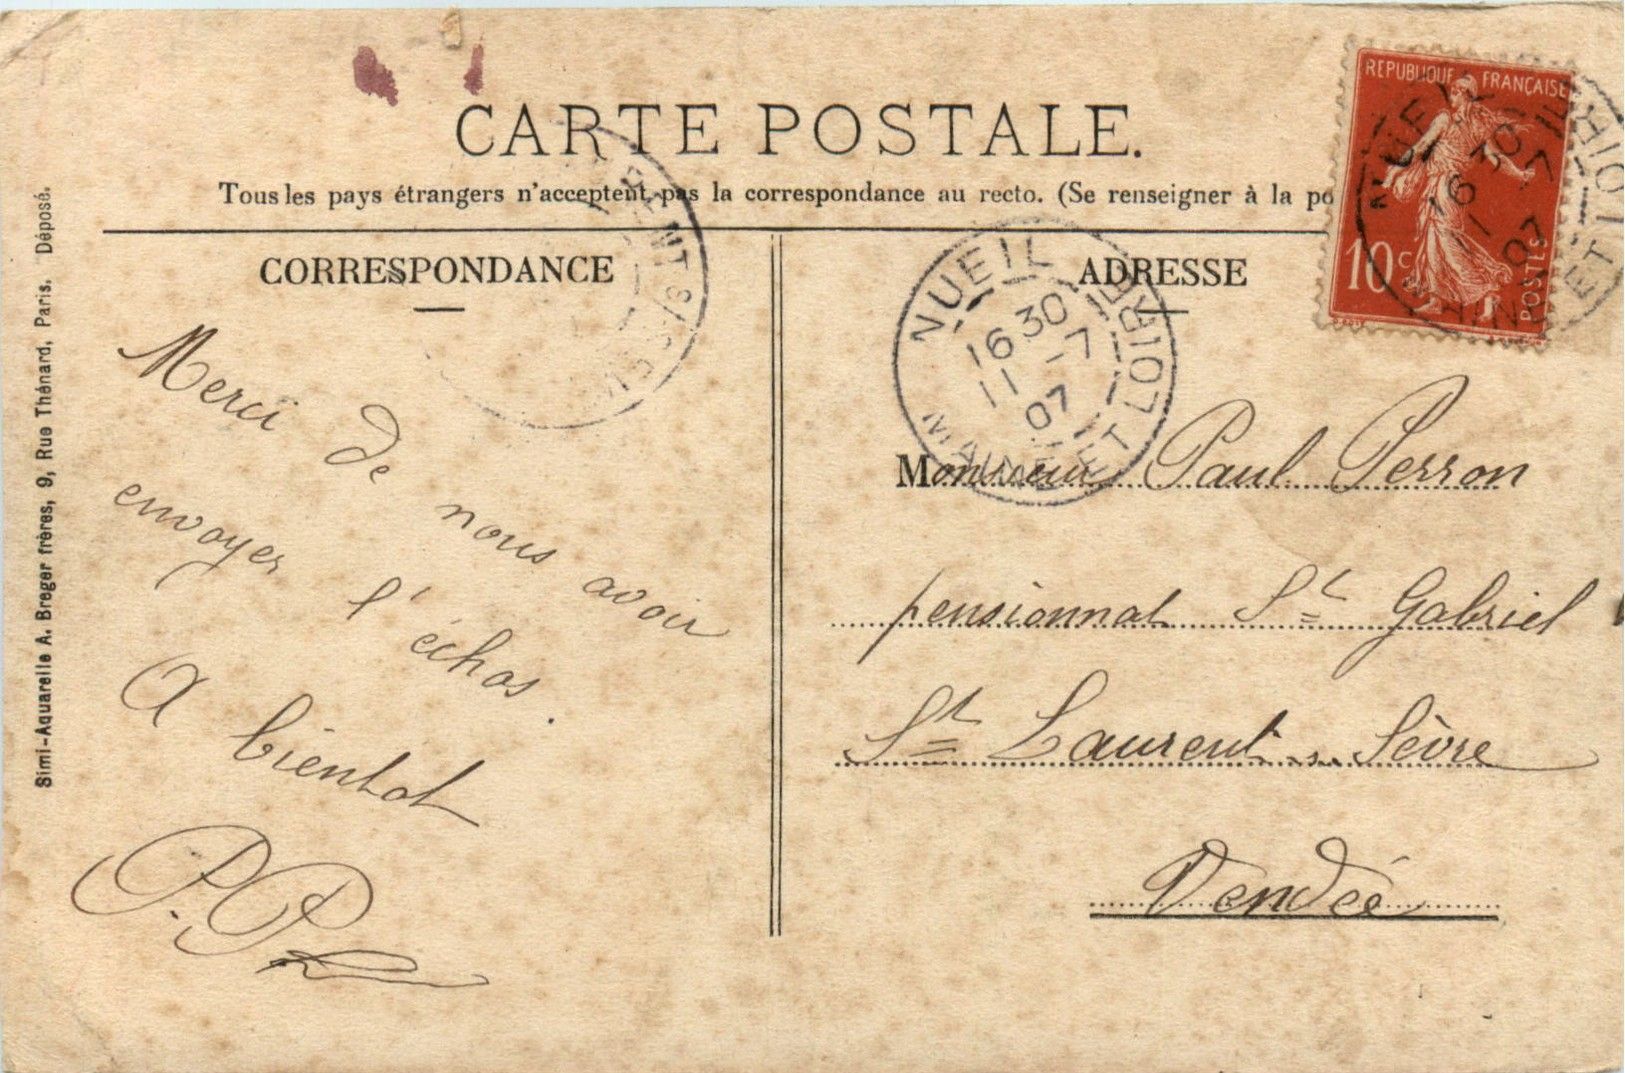 CARTE POSTALE.
Tous les pays étrangers n'acceptent pas la correspondance au recto. (Se renseigner à la po
CORRESPONDANCE
Merci de nous avoir
envoyer l'échos.
A bientot
P. P
ADRESSE
Monsieur Paul Perron
pensionnat St Gabriel
St Laurent s. Sèvre
Vendée
REPUBLIQUE FRANÇAISE
10 c
POSTES
NUEIL
16 30
11 -7
07
MAINE ET LOIRE
NUEIL
16 30
11 -7
07
MAINE ET LOIRE
Simi-Aquarelle A. Breger frères, 9, Rue Thénard, Paris. Déposé.